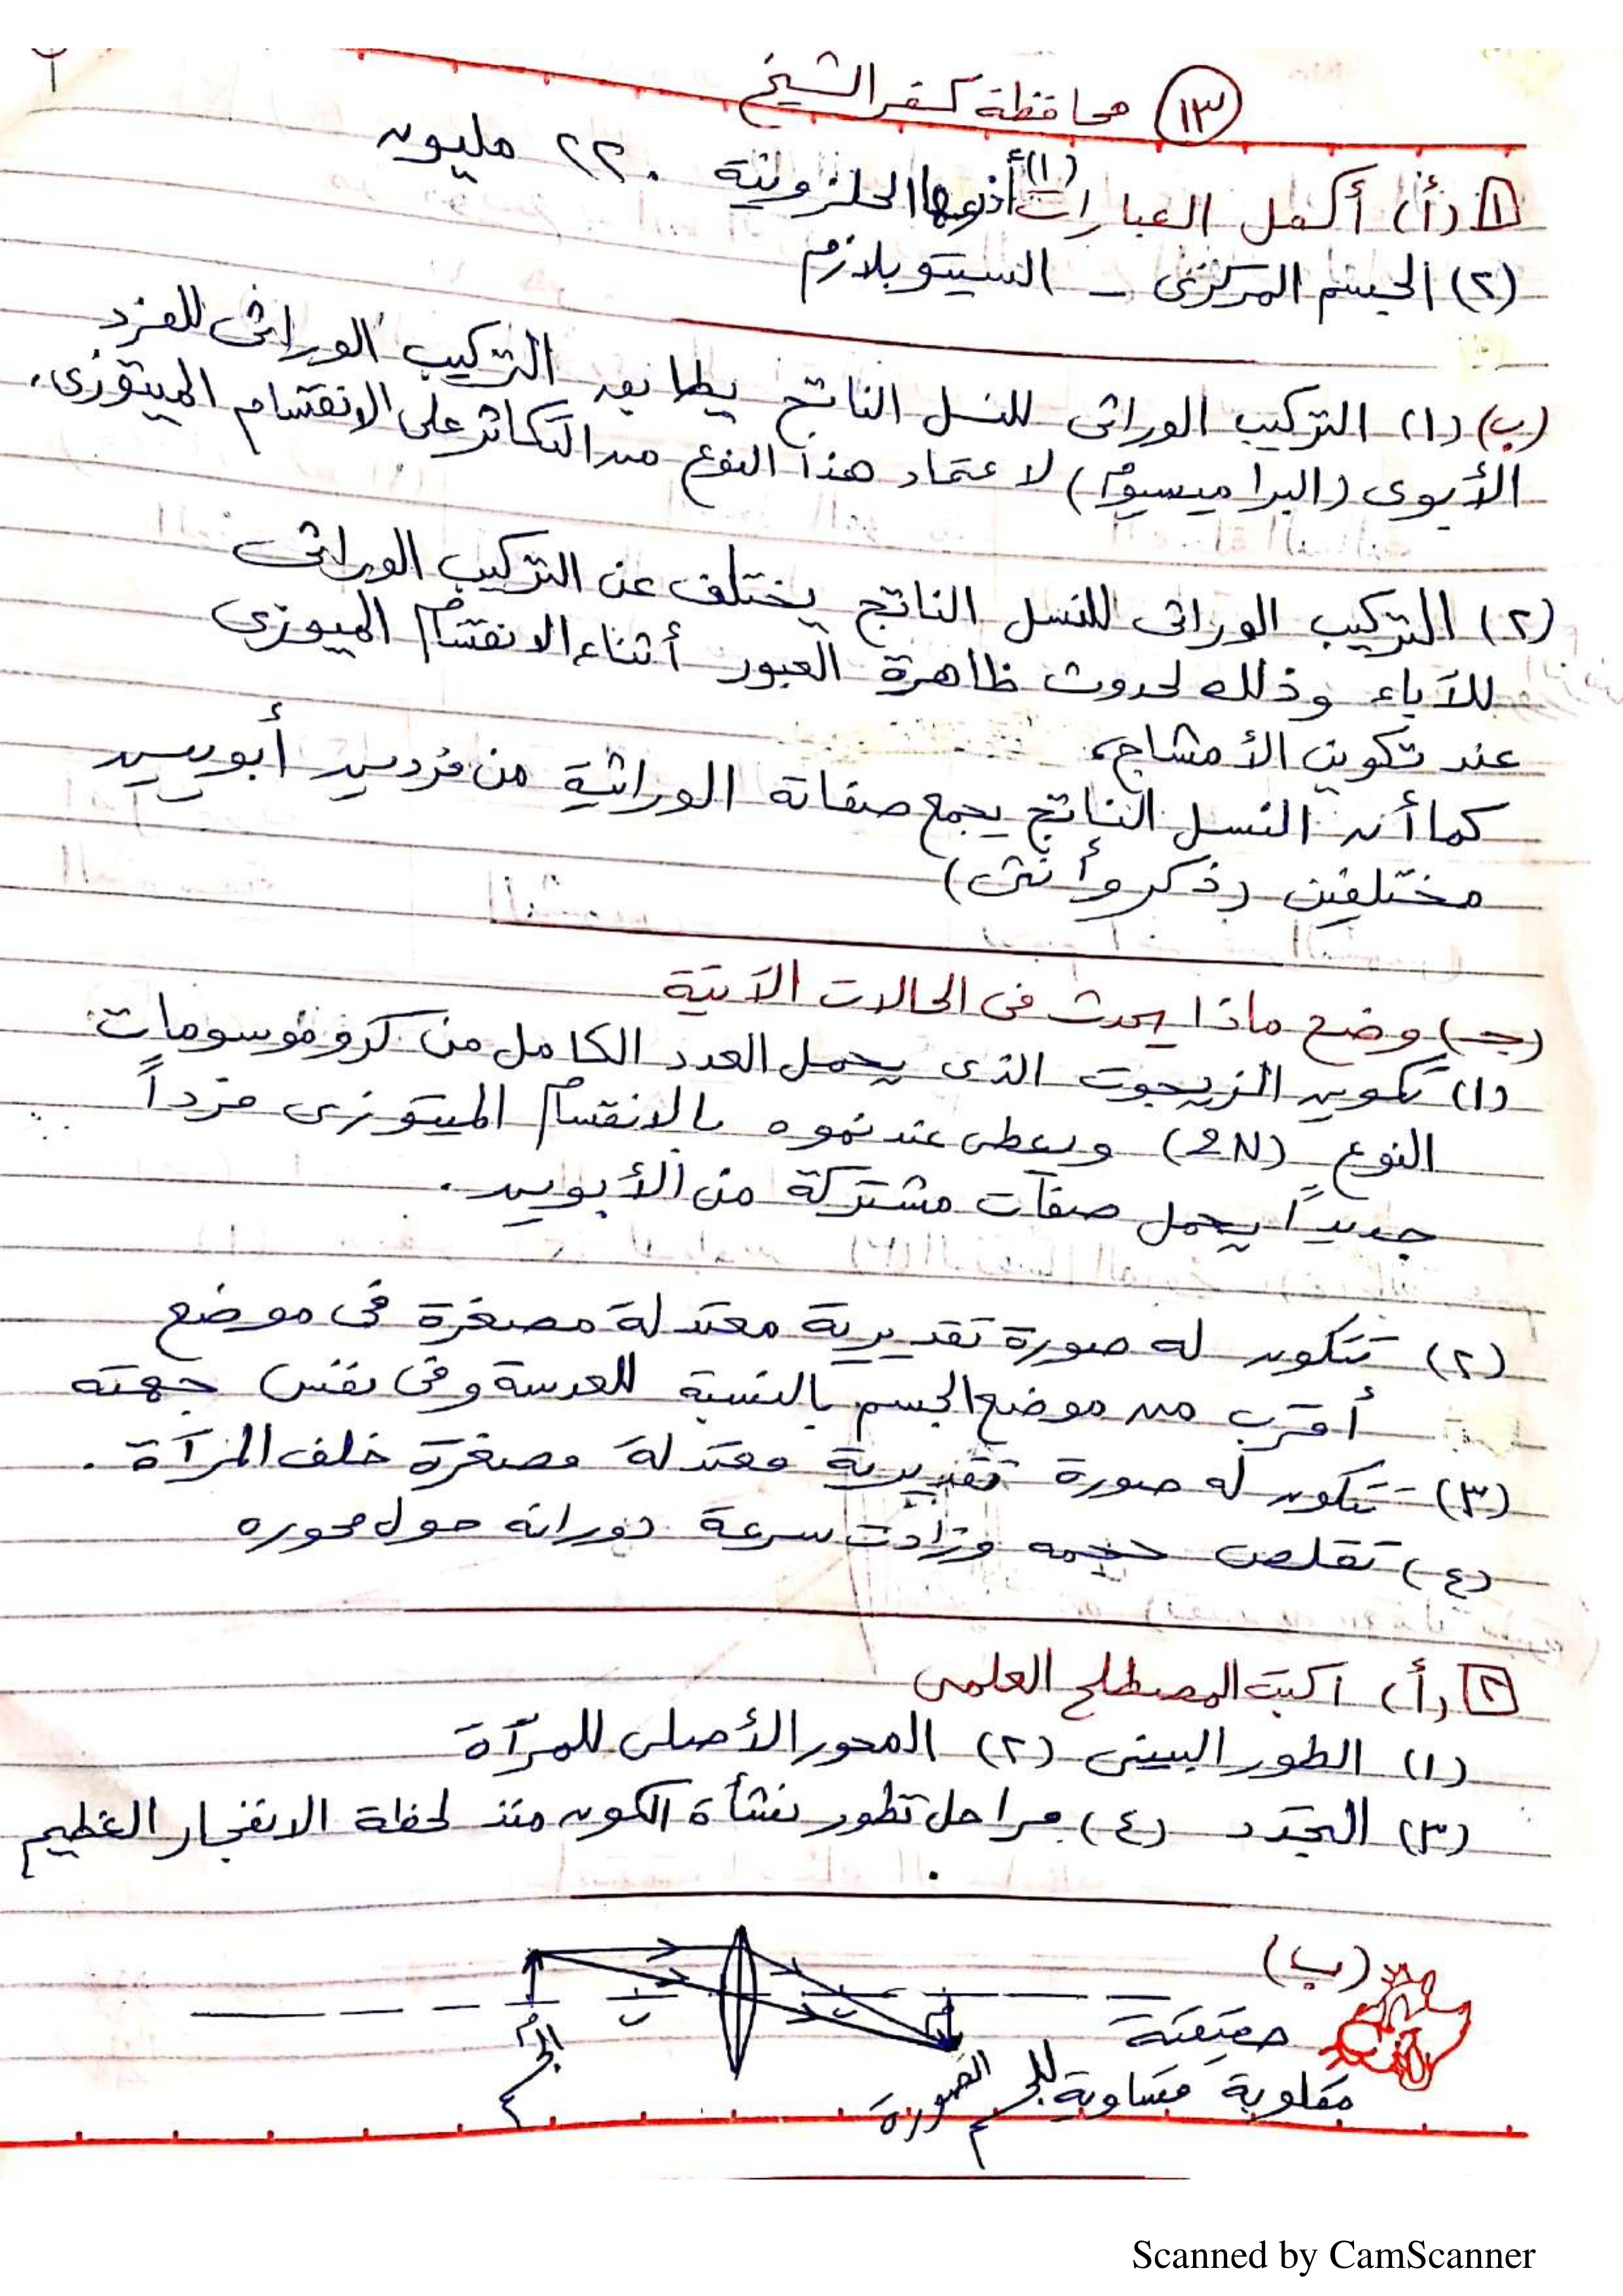 ١٣ محافظة كفر الشيخ
١ (أ) أكمل العبارات (١) أذرعها الحلزونية . ٢٢٠ مليون
(٢) الجسم المركزى - السيتوبلازم
(ب) (١) التركيب الوراثى للنسل الناتج يطابق التركيب الوراثى للفرد
الأبوى (البراميسيوم) لاعتماد هذا النوع من التكاثر على الانقسام الميتوزى.
(٢) التركيب الوراثى للنسل الناتج يختلف عن التركيب الوراثى
للآباء وذلك لحدوث ظاهرة العبور أثناء الانقسام الميوزى
عند تكوين الأمشاج،
كما أن النسل الناتج يجمع صفاته الوراثية من فردين أبويين
مختلفين (ذكر وأنثى)
(جـ) وضح ماذا يحدث فى الحالات الآتية
(١) تكوين الزيجوت الذى يحمل العدد الكامل من كروموسومات
النوع (2N) ويعطى عند نموه بالانقسام الميتوزى فرداً
جديداً يحمل صفات مشتركة من الأبوين .
(٢) تتكون له صورة تقديرية معتدلة مصغرة فى موضع
أقرب من موضع الجسم بالنسبة للعدسة وفى نفس جهته
(٣) تتكون له صورة تقديرية معتدلة مصغرة خلف المرآة .
(٤) تقلص حجمه وزادت سرعة دورانه حول محوره
٢ (أ) اكتب المصطلح العلمى
(١) الطور البينى (٢) المحور الأصلى للمرآة
(٣) التجدد (٤) مراحل تطور نشأة الكون منذ لحظة الانفجار العظيم
.
(ب)
ب
ب
حقيقية
الجسم
الصورة
مقلوبة مساوية للجسم
Scanned by CamScanner